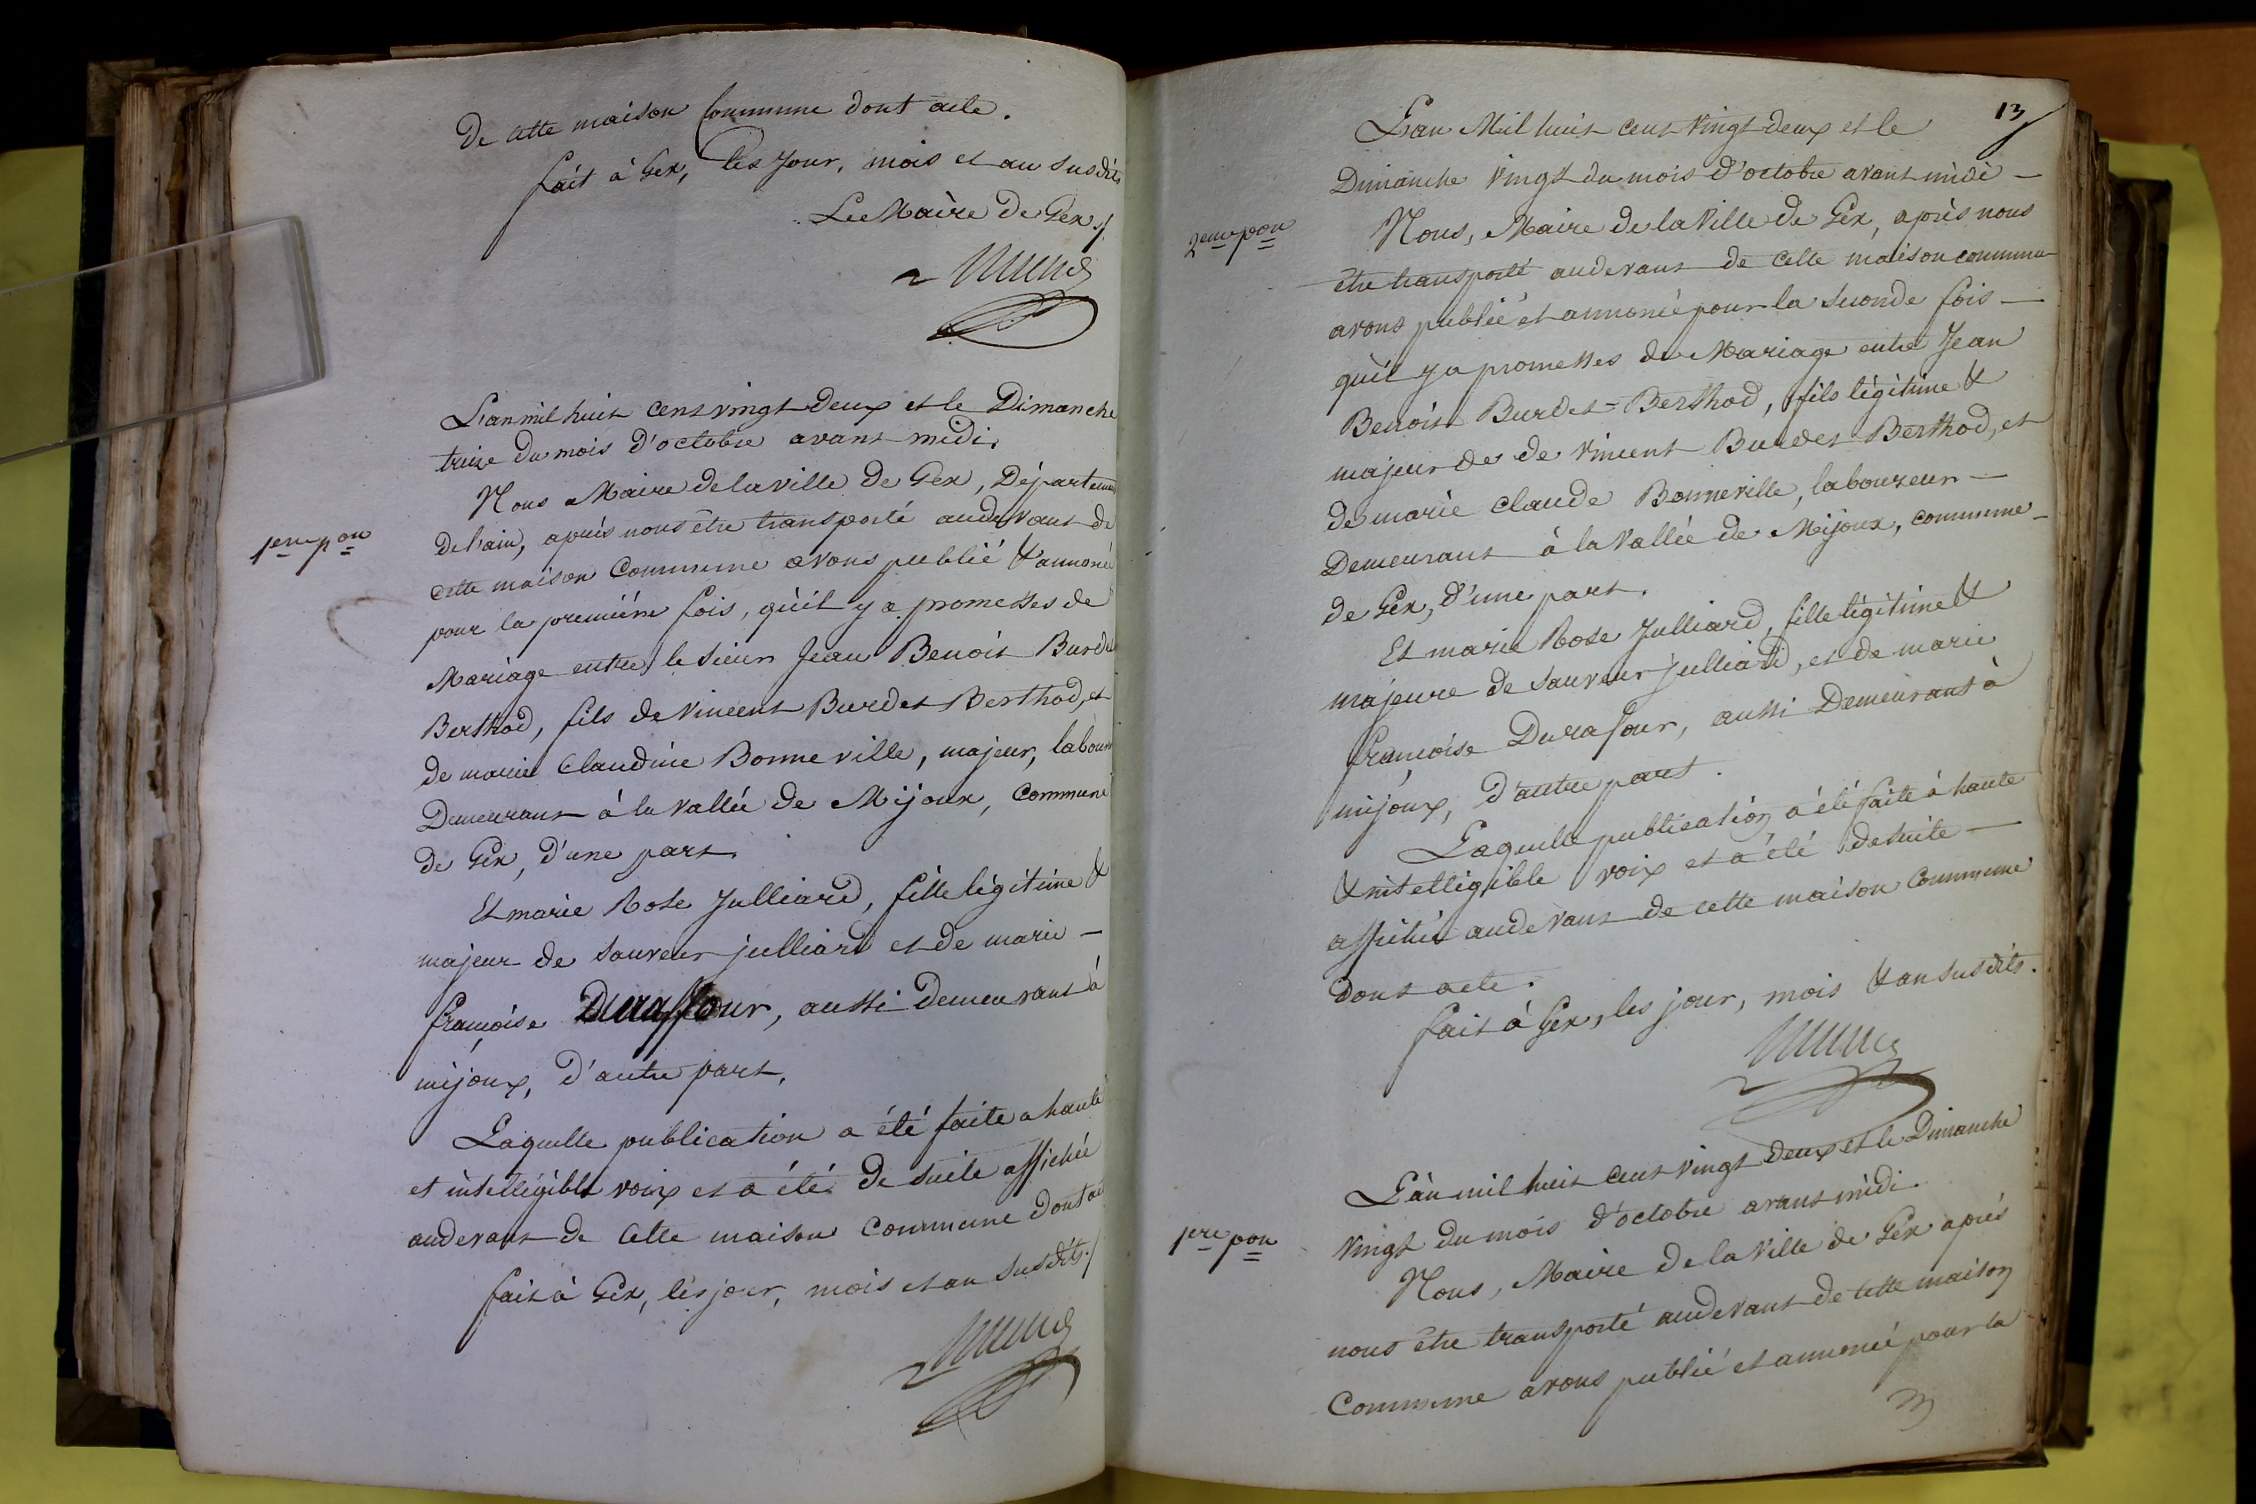 De cette maison Commune dont acte.
fait à Gex, les Jour, mois et an susdits
Le Maire de Gex ./.
L'an mil huit cent vingt deux et le Dimanche
treize du mois d'octobre avant midi.
1ere pon
Nous Maire de la ville de Gex, Départeme
de l'ain, après nous être transporté audevant de
cette maison Commune avons publié & annoncé
pour la première fois, qu'il y a promesses de
Mariage entre le sieur Jean Benoit Burdet
Berthod, fils de Vincent Burdet Berthod, et
de marie Claudine Bonneville, majeur, labour
Demeurant à la vallée de Mijoux, Commune
de Gex, d'une part.
Et marie Rose Julliard, fille légitime &
majeur de Sauveur julliard et de marie —
françoise Duraffour, aussi Demeurant à
mijoux, d'autre part.
Laquelle publication a été faite a haute
et intelligible voix et a été de suite affichée
audevant de Cette maison Commune dont ac
fait à Gex, les jour, mois et an susdits ./
13
L'an Mil huit cent vingt deux et le
Dimanche vingt du mois d'octobre avant midi —
2eme pon
Nous, Maire de la Ville de Gex, après nous
être transporté audevant de cette maison commune
avons publié et annoncé pour la seconde fois —
qu'il y a promesses de Mariage entre Jean
Benoit Burdet=Berthod, fils légitime &
majeur de de Vincent Burdet Berthod, et
de marie Claude Bonneville, laboureur —
Demeurant à la Vallée de Mijoux, commune —
de Gex, d'une part.
Et marie Rose Julliard, fille légitime &
majeure de Sauveur julliard, et de marie
françoise Durafour, aussi Demeurant à
mijoux, d'autre part.
Laquelle publication a été faite à haute
& intelligible voix et a été desuite —
affichée audevant de cette maison Commune
dont acte.
fait à Gex, les jour, mois & an susdits.
L'an mil huit cent vingt deux et le Dimanche
vingt du mois d'octobre avant midi.
1ere pon
Nous, Maire de la Ville de Gex après
nous être transporté audevant de cette maison
Commune avons publié et annoncé pour la